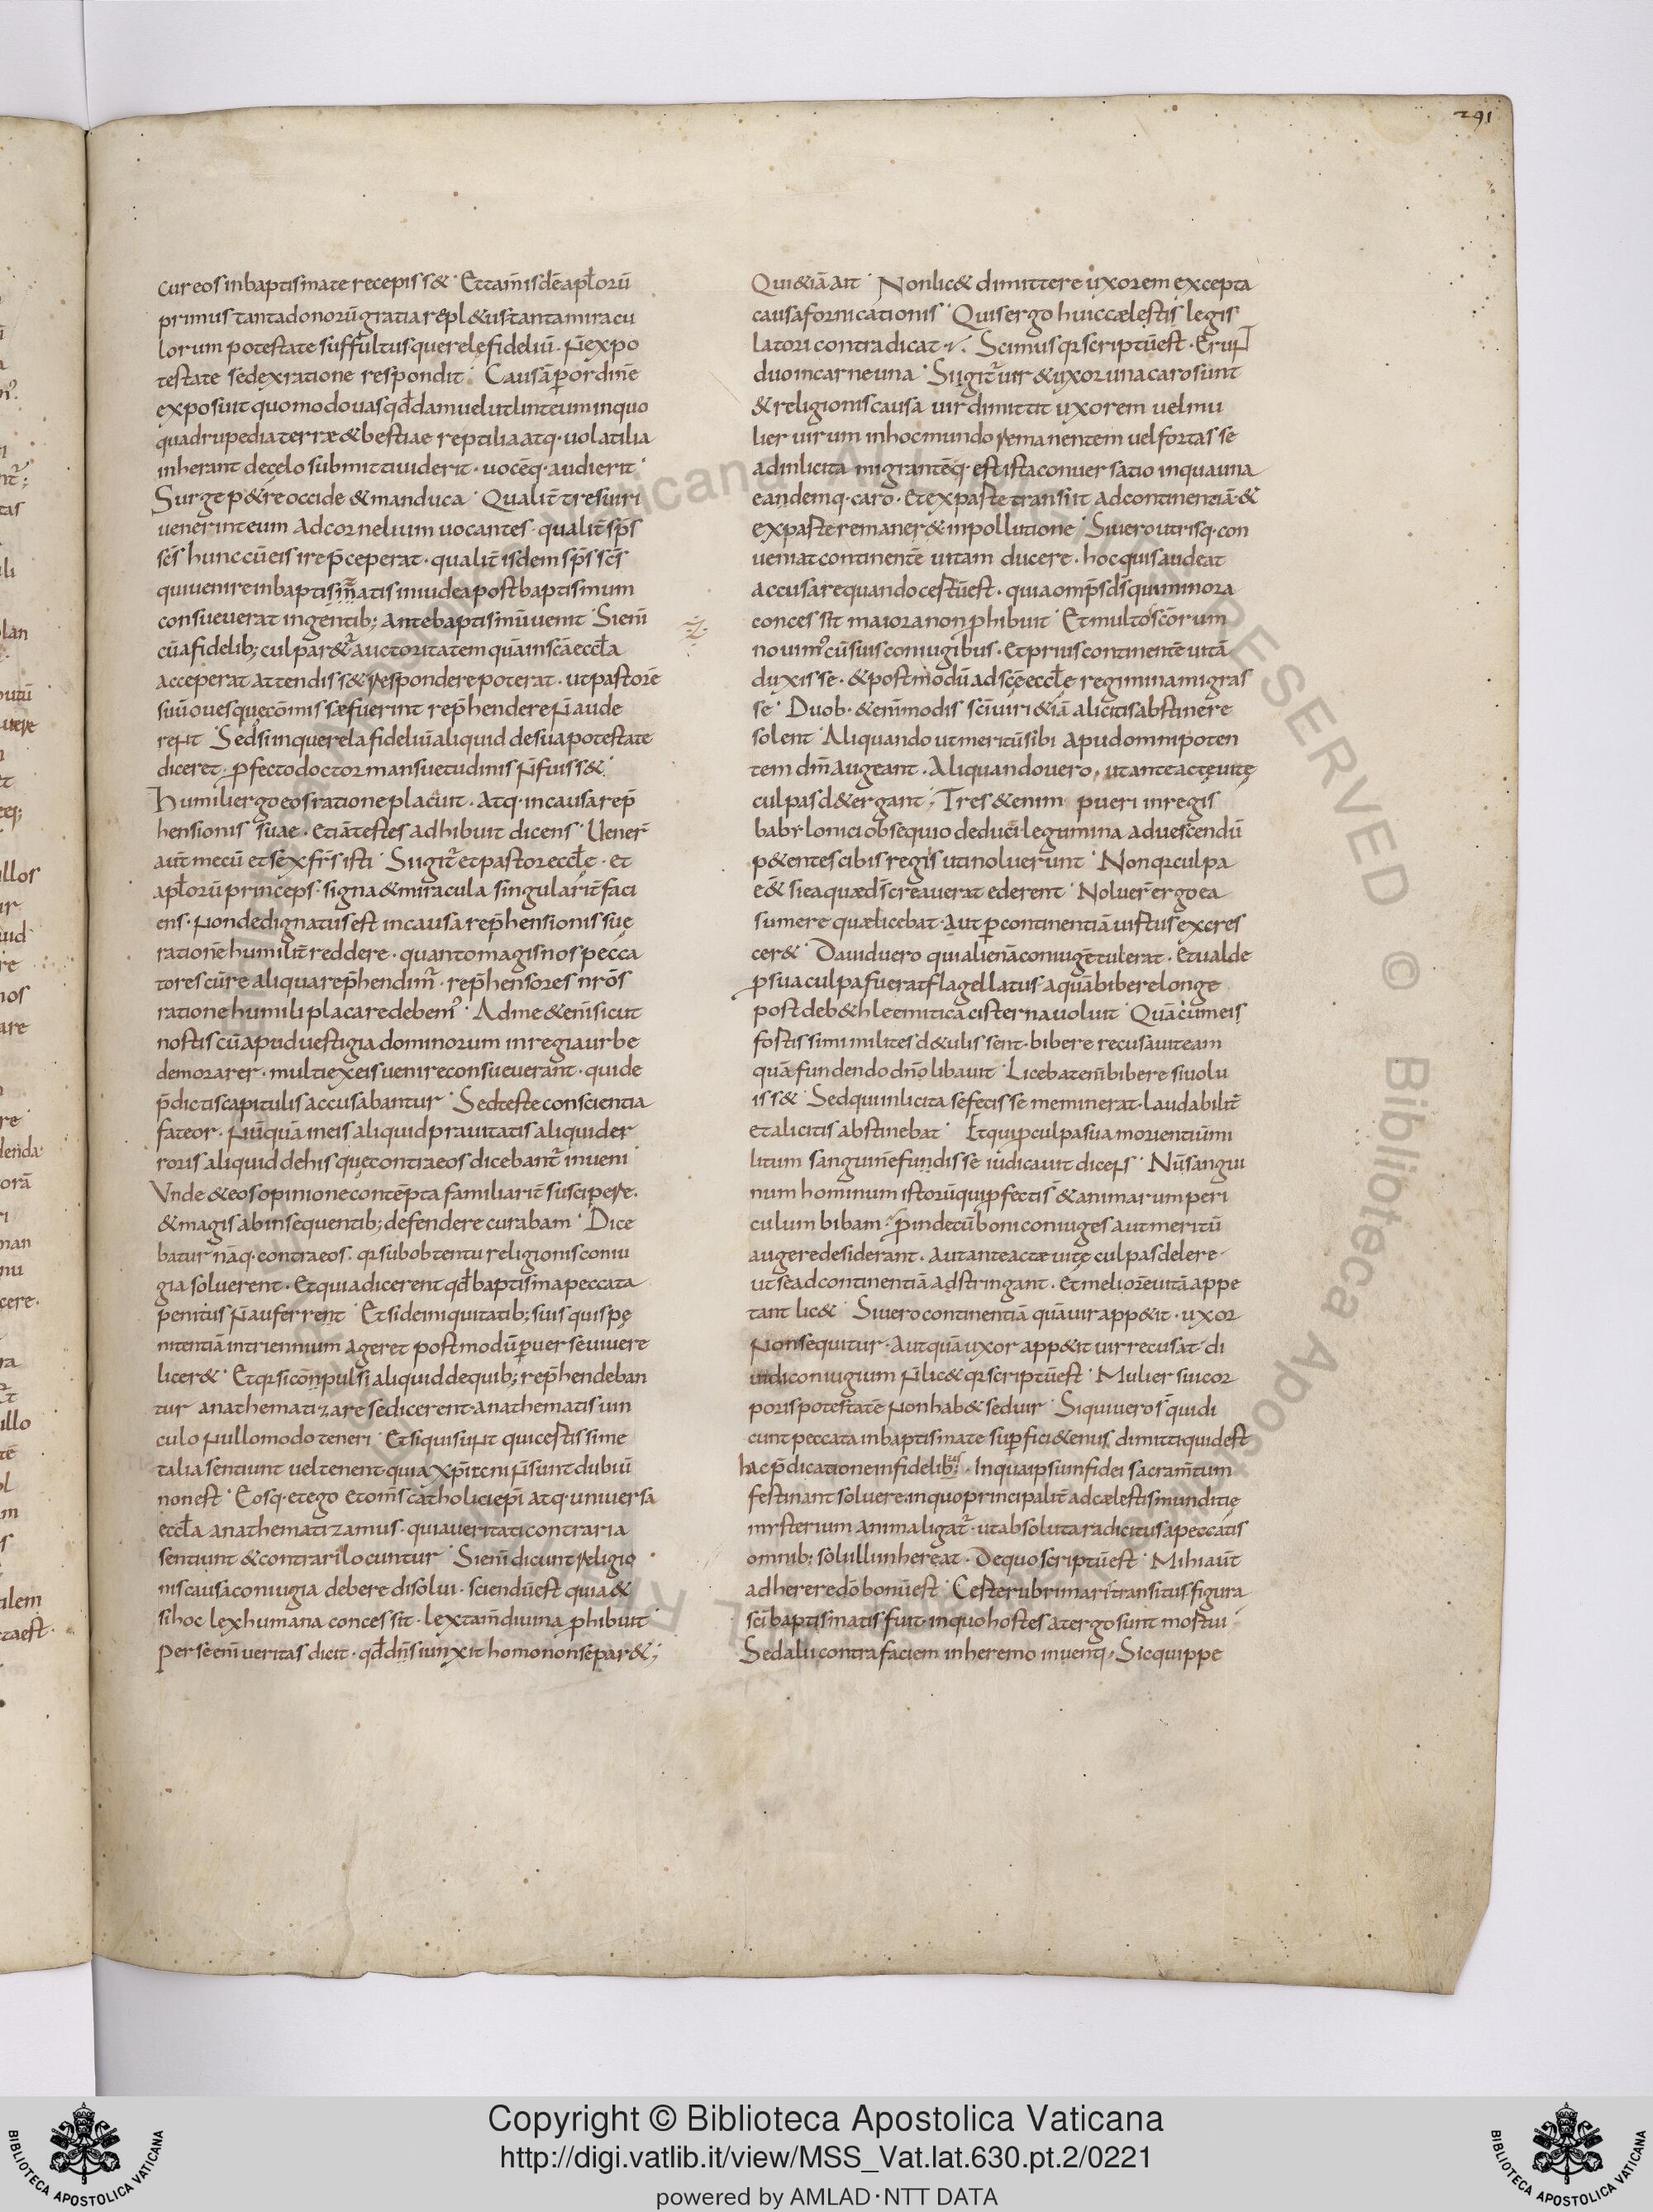 291
cur eos in baptismate recepiss& · Et tam̄ isdē apłorū
primus tanta donorū gratia repl&us tanta miracu
lorum potestate suffultus querele fideliū · n̄ ex po
testate sed ex ratione respondit · Causā p ordinē
exposuit quomodo uas qđdam uelut linteum in quo
quadrupedia terræ & bestiae reptilia atq· uolatilia
inherant de celo submitti uiderit · uocēq· audierit ·
Surge p&re occide & manduca · Qualit̄ tres uiri
uenerint eum ad cornelium uocantes · qualit̄ sp̄s
sc̄s hunc cū eis ire p̄ceperat · qualit̄ isdem sp̄s sc̄s
qui uenire in baptismatis in iudea post baptismum
consueuerat in gentib; ante baptismū uenit · Si eni
cū a fidelib; culpar&ur auctoritatem quā in sc̄a eccła
acceperat attendiss& respondere poterat · ut pastorē
suū oues quę cōmissæ fuerint rep̄hendere n̄ aude
rent · Sed si in querela fideliū aliquid de sua potestate
diceret · pfecto doctor mansuetudinis n̄ fuiss& ·
Humili ergo eos ratione placuit · atq· in causa rep̄
hensionis suae · etiā testes adhibuit dicens · Uener̄
aut̄ mecū et sex fr̄s isti · Si igit̄ et pastor eccłę · et
apłorū princeps · signa & miracula singularit̄ faci
ens · non dedignatus est in causa rep̄hensionis suę
rationē humilit̄ reddere · quanto magis nos pecca
tores cū re aliqua rep̄hendim̄ · rep̄hensores nr̄os
ratione humili placare debem᾽ · Ad me &eni sicut
nostis cū apud uestigia dominorum in regia urbe
demorarer · multi ex eis uenire consueuerant · qui de
p̄dictis capitulis accusabantur · Sed teste conscientia
fateor · nūquā in eis aliquid prauitatis aliquid er
roris aliquid de his quę contra eos dicebant̄ inueni
Vnde & eos opinione contēpta familiarit̄ suscipere ·
& magis ab insequentib; defendere curabam · Dice
batur nāq· contra eos · q̄ sub obtentu religionis coniu
gia soluerent · Et quia dicerent qđ baptisma peccata
penitus n̄ auferrent · Et si de iniquitatib; suis quis pę
nitentiā in triennium ageret postmodū peruerse uiuere
licer& · Et q̄ si cōnpulsi aliquid de quib; rep̄hendeban
tur anathematizare se dicerent · anathematis uin
culo nullo modo teneri · Et si qui sunt qui certissime
talia sentiunt uel tenent · quia xp̄iani n̄ sunt dubiū
non est · Eosq· et ego et om̄s catholici ep̄i atq· uniuersa
eccła anathematizamus · quia ueritati contraria
sentiunt & contraria locuntur · Si eni dicunt religio
nis causa coniugia debere disolui · sciendū est quia &
si hoc lex humana concessit · lex tam̄ diuina phibuit
Per se eni ueritas dicit · qđ dn̄s iunxit homo non separ&;
Qui &iā ait · Non lic& dimittere uxorem excepta
causa fornicationis · Quis ergo huic cælestis legis
latori contradicat · Scimus q̄ scriptū est · Erunt
duo in carne una · Si igit̄ uir & uxor una caro sunt
& religionis causa uir dimittit uxorem uel mu
lier uirum in hoc mundo remanentem uel fortasse
ad inlicita migrantēq· est ista conuersatio in qua una
eandemq· caro · et ex parte transiit ad continentiā · &
ex parte remaner& in pollutione · Si uero utrisq· con
ueniat continentē uitam ducere · hoc quis audeat
accusare quando certū est · quia omp̄s ds̄ qui minora
concessit maiora non phibuit · Et multos sc̄orum
nouim᾽ cū suis coniugibus · et prius continentē uitā
duxisse · & postmodū ad sc̄ę eccłę regimina migras
se · Duob· &eni modis sc̄i uiri &iā a licitis abstinere
solent · Aliquando ut meritū sibi apud omnipoten
tem dm̄ augeant · Aliquando uero, ut anteactę uitę
culpas d&ergant; Tres &enim pueri in regis
babylonici obsequio deduci legumina ad uescendū
p&entes cibis regis uti noluerunt · Non q̄ culpa
ess& si ea quæ ds̄ creauerat ederent · Noluer̄ ergo ea
sumere quæ licebat · aut p continentiā uirtus excres
cer& · Dauid uero qui alienā coniugē tulerat · et ualde
p sua culpa fuerat flagellatus · aquā bibere longe
post de b&hleemitica cisterna uoluit · Quā cum eis
fortissimi milites d&ulissent · bibere recusauit eam
quā fundendo dn̄o libauit · Licebat eni bibere si uolu
iss& · Sed qui inlicita se fecisse meminerat · laudabilit̄
et a licitis abstinebat · Et qui p culpa sua morientiū mi
litum sanguinē fundisse iudicauit dicens · Nū sangui
num hominum istorū qui pfecti s̄ & animarum peri
culum bibam · pinde cū boni coniuges aut meritū
augere desiderant · aut anteactæ uitę culpas delere ·
ut se ad continentiā adstringant · et meliorē uitā appe
tant lic& · Si uero continentiā quā uir app&it · uxor
non sequitur · aut quā uxor app&it uir recusat · di
uidi coniugium n̄ lic& q̄ scriptū est · Mulier sui cor
poris potestatē non hab& sed uir · Si qui uero s̄ qui di
cunt peccata in baptismate supfici&enus dimitti quid est
hac p̄dicatione infidelib; · In qua ipsum fidei sacram̄tum
festinant soluere · in quo principalit̄ ad cælestis munditię
mysterium anima ligat̄ · ut absoluta radicitus a peccatis
omnib; soli illi inhereat · De quo scriptū est · Mihi aut̄
adherere dō bonū est · Certe rubri mari transitus figura
sc̄i baptismatis fuit · in quo hostes a tergo sunt mortui ·
Sed alii contra faciem in heremo inuenti, Sic quippe
Copyright © Biblioteca Apostolica Vaticana
http://digi.vatlib.it/view/MSS_Vat.lat.630.pt.2/0221
powered by AMLAD·NTT DATA